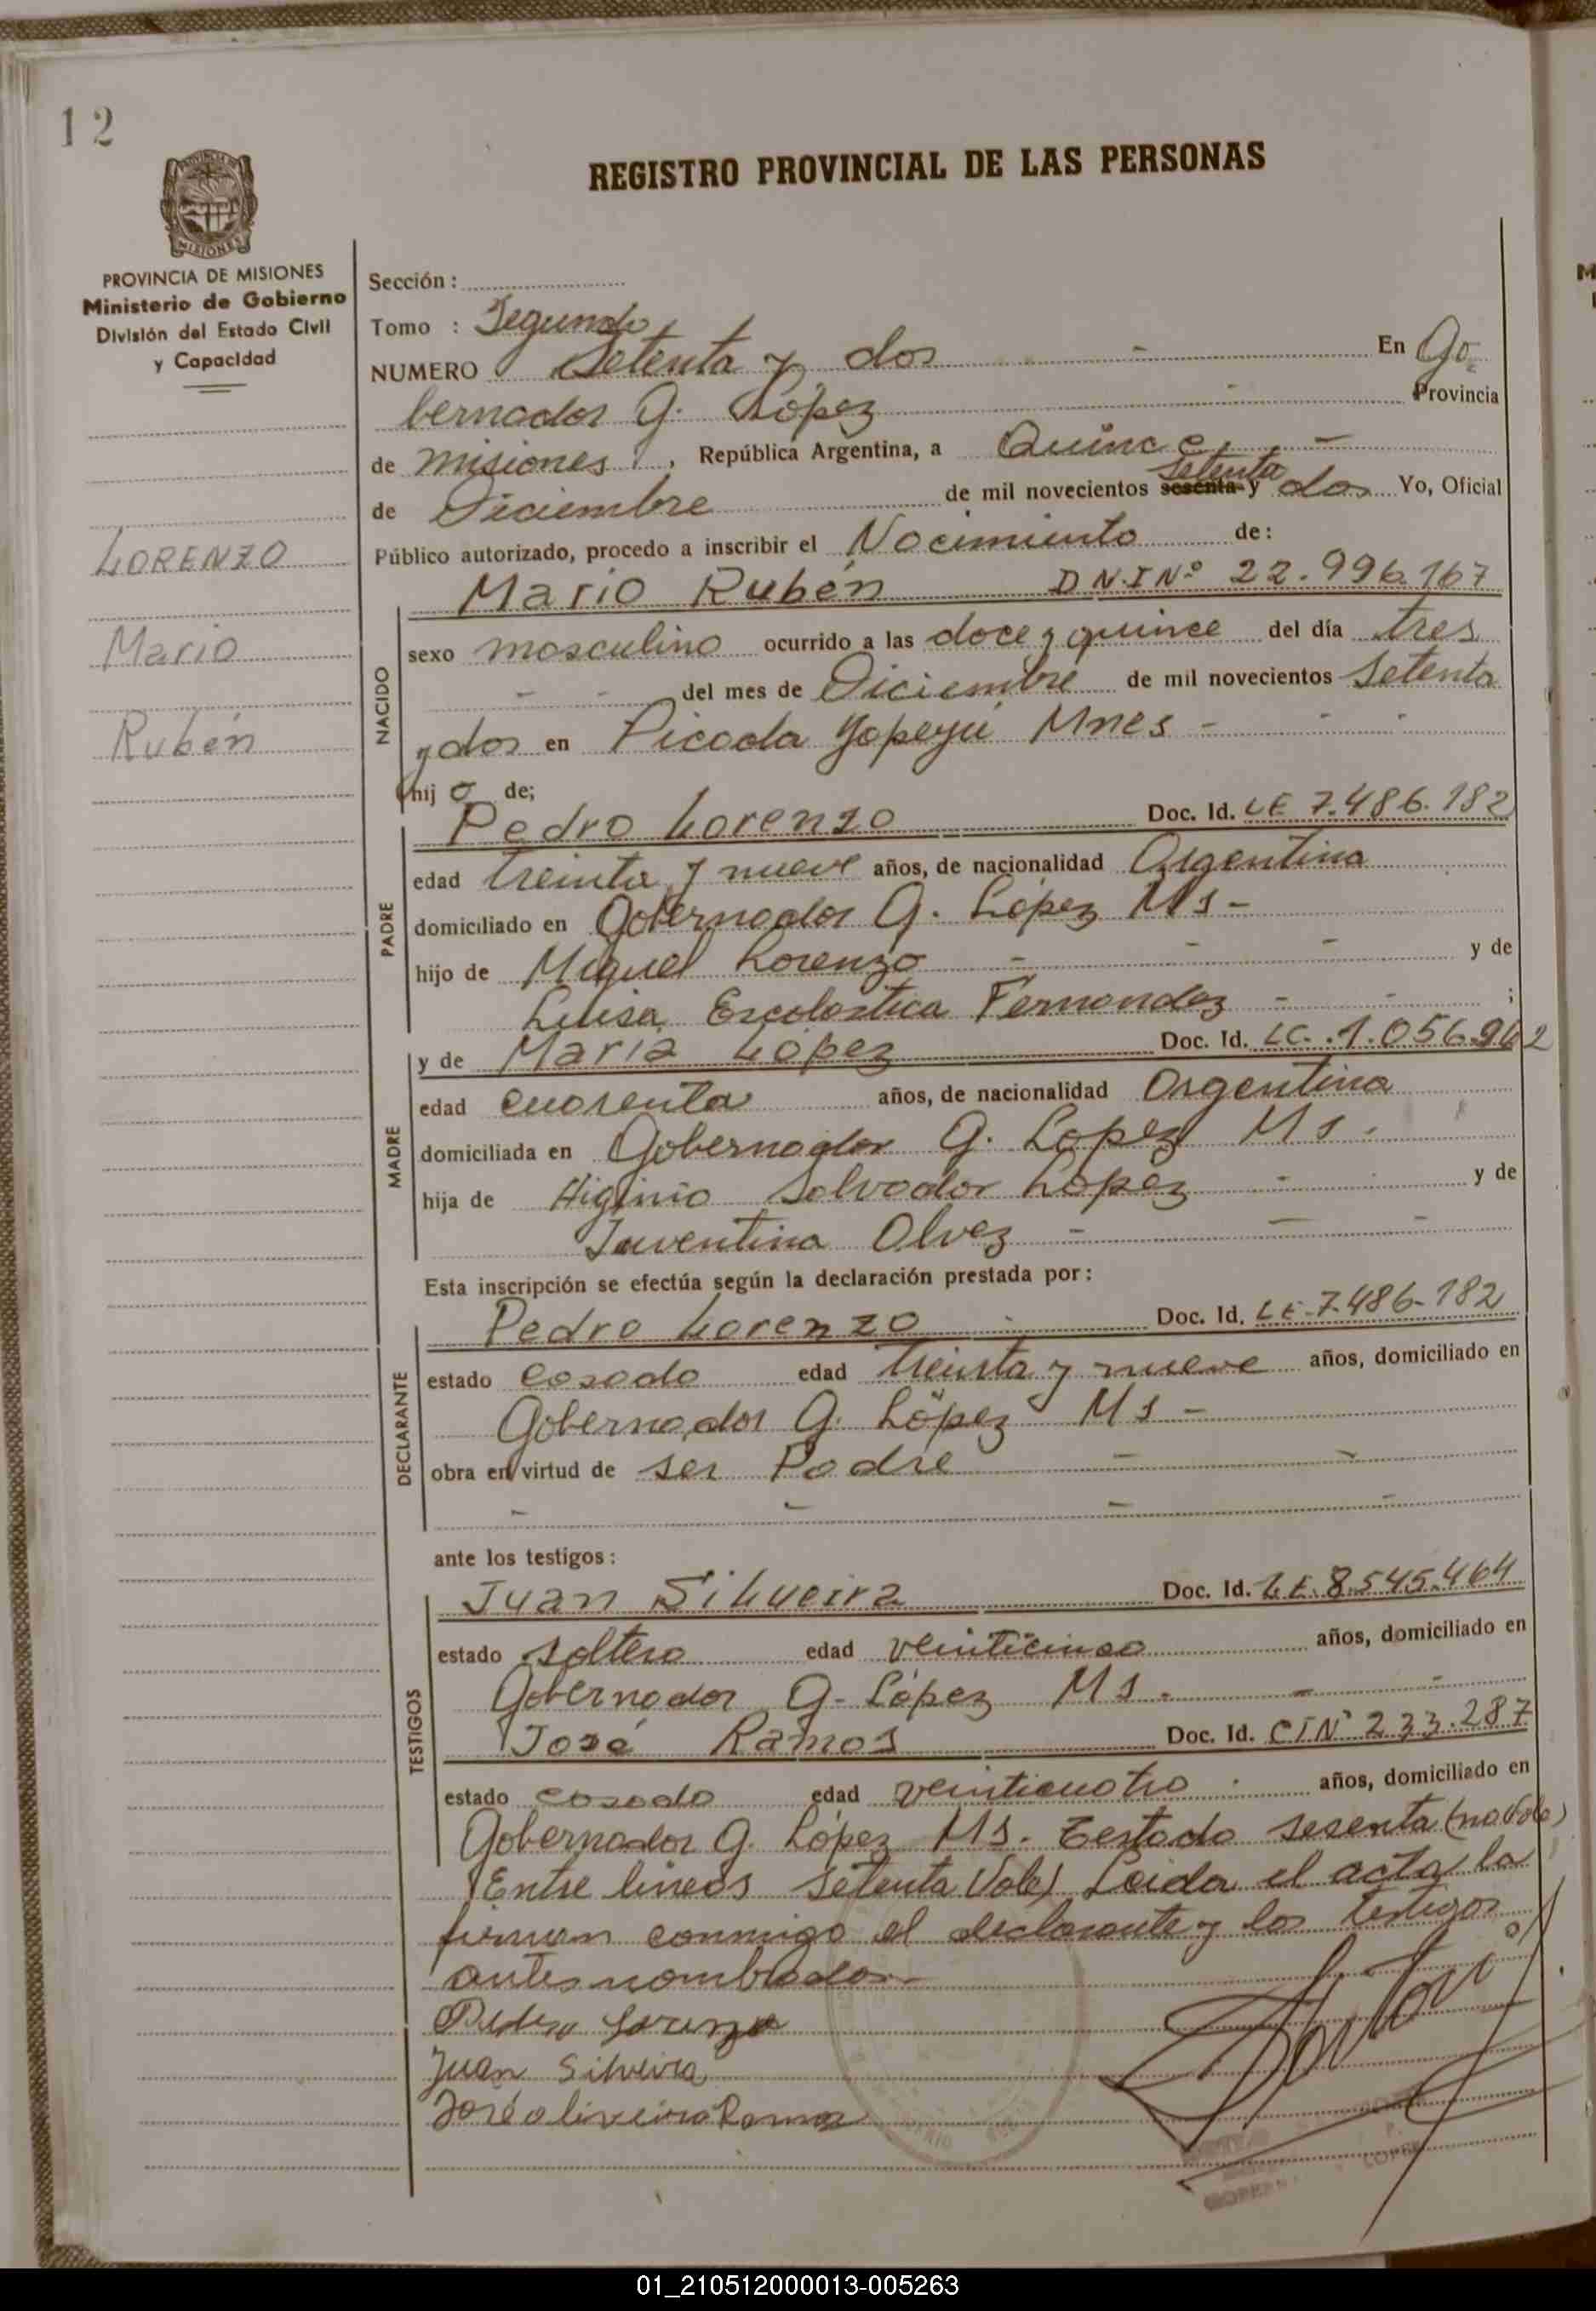 12
REGISTRO PROVINCIAL DE LAS PERSONAS
MISIONES
PROVINCIA DE MISIONES
Ministerio de Gobierno
División del Estado Civil
y Capacidad
LORENZO
Mario
Rubén
Sección :
Tomo : Segundo
NUMERO Setenta y dos - En Go=
bernador G. López - Provincia
de misiones, República Argentina, a Quince -
setenta
de Diciembre de mil novecientos sesenta y dos Yo, Oficial
Público autorizado, procedo a inscribir el Nacimiento de:
Mario Rubén D N.I Nº 22.996.167
NACIDO
sexo masculino ocurrido a las doce y quince del día tres
- - del mes de Diciembre de mil novecientos setenta
y dos en Picada Yapeyú Mnes - - -
hij o de;
PADRE
Pedro Lorenzo Doc. Id. LE 7.486.182
edad treinta y nueve años, de nacionalidad Argentina
domiciliado en Gobernador G. López Ms -
hijo de Miguel Lorenzo - - - y de
Luisa Escolastica Fernandez - - ;
MADRE
y de María López Doc. Id. LC. 1.056.962
edad cuarenta años, de nacionalidad Argentina
domiciliada en Gobernador G. Lopez Ms.
hija de Higinio Salvador López - y de
Juventina Olvez - - -
Esta inscripción se efectúa según la declaración prestada por:
DECLARANTE
Pedro Lorenzo - Doc. Id. LE-7.486-182
estado casado edad treinta y nueve años, domiciliado en
Gobernador G. López Ms -
obra en virtud de ser Padre - -
- - - -
ante los testigos:
TESTIGOS
Juan Silveira Doc. Id. L.E. 8.545.464
estado soltero edad veinticinco años, domiciliado en
Gobernador G. López Ms. - -
José Ramos Doc. Id. CIN° 233.287
estado casado edad veinticuatro . años, domiciliado en
Gobernador G. López Ms. Testado sesenta (no Vale)
(Entre lineas setenta Vale) Leida el acta la
firman conmigo el declarante y los testigos
antes nombrados.-
Pedro Lorenzo
Juan Silveira
José oliveira Ramos
01_210512000013-005263